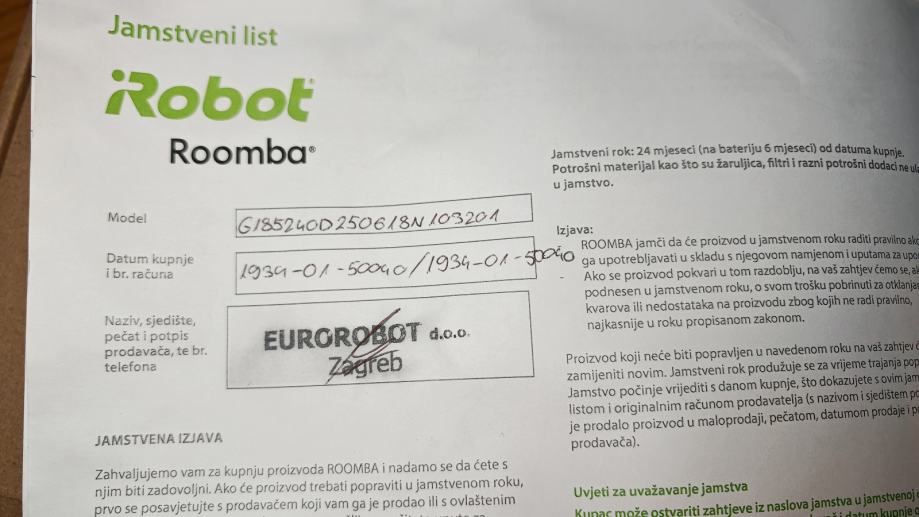 Jamstveni list
iRobot®
Roomba®
Model
G185240D250618N103201
Datum kupnje
i br. računa
1934-01-50040/1934-01-50040
Naziv, sjedište,
pečat i potpis
prodavača, te br.
telefona
EUROROBOT d.o.o.
Zagreb
JAMSTVENA IZJAVA
Zahvaljujemo vam za kupnju proizvoda ROOMBA i nadamo se da ćete s
njim biti zadovoljni. Ako će proizvod trebati popraviti u jamstvenom roku,
prvo se posavjetujte s prodavačem koji vam ga je prodao ili s ovlaštenim
Jamstveni rok: 24 mjeseci (na bateriju 6 mjeseci) od datuma kupnje.
Potrošni materijal kao što su žaruljica, filtri i razni potrošni dodaci ne
u jamstvo.
Izjava:
ROOMBA jamči da će proizvod u jamstvenom roku raditi pravilno
ga upotrebljavati u skladu s njegovom namjenom i uputama za
- Ako se proizvod pokvari u tom razdoblju, na vaš zahtjev ćemo se,
podnesen u jamstvenom roku, o svom trošku pobrinuti za
kvarova ili nedostataka na proizvodu zbog kojih ne radi pravilno,
najkasnije u roku propisanom zakonom.
Proizvod koji neće biti popravljen u navedenom roku na vaš zahtjev
zamijeniti novim. Jamstveni rok produžuje se za vrijeme trajanja
Jamstvo počinje vrijediti s danom kupnje, što dokazujete s ovim
listom i originalnim računom prodavatelja (s nazivom i sjedištem
je prodalo proizvod u maloprodaji, pečatom, datumom prodaje i
prodavača).
Uvjeti za uvažavanje jamstva
Kupac može ostvariti zahtjeve iz naslova jamstva u jamstvenoj
datum kupnje